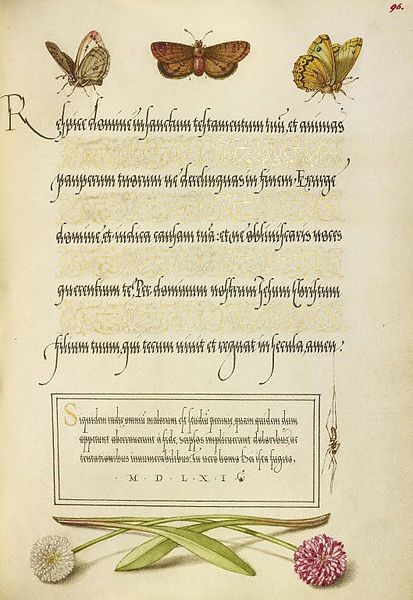 96.
Respice domine in sanctum testamentum tuū, et animas
pauperum tuorum ne derelinquas in finem. Exurge
domine et iudica causam tuā: et ne obliuiscaris uoces
querentium te. Per dominum nostrum Iesum Christum
filium tuum, qui tecum uiuit et regnat in secula, amen:
Siquidem radix omniū malorum est studiū pecuniæ, quam quidem dum
appetunt aberrauerunt a fide, seipsos implicuerunt doloribus, ac
tentationibus innumerabilibus. Tu uero homo Dei ista fugito.
· M · D · L · X I ·